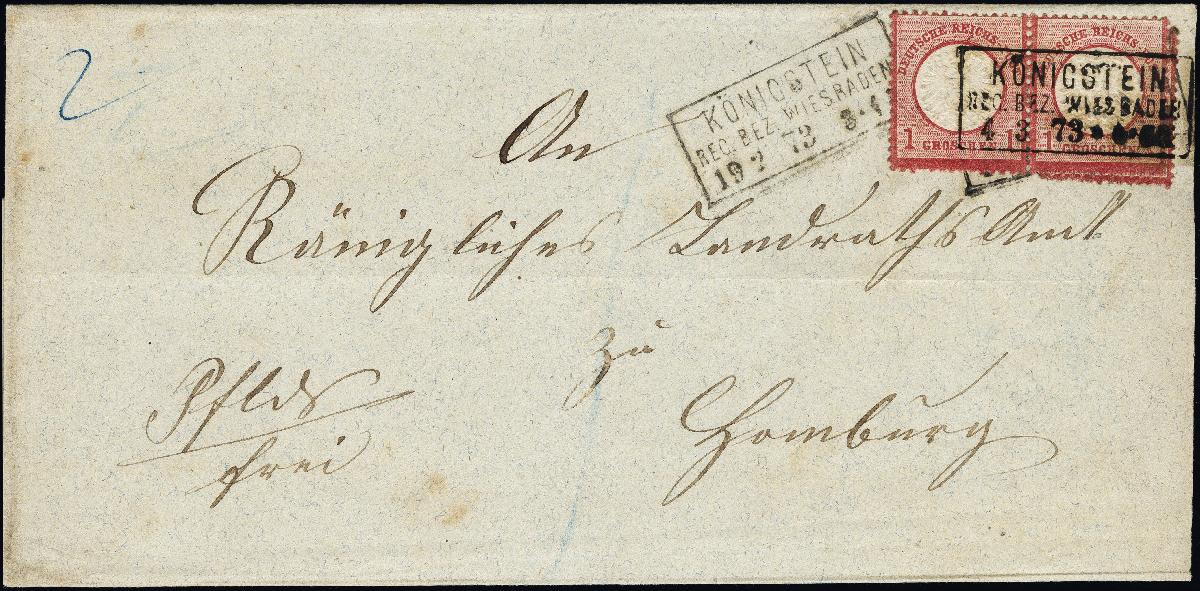 2
KÖNIGSTEIN
REG. BEZ. WIESBADEN
19 2 73
DEUTSCHE REICHS
1 GROSCHEN 1
KÖNIGSTEIN
REG. BEZ. WIESBADEN
4 3 73
An
Königliches Landraths Amt
zu
Homburg
Pflds
frei